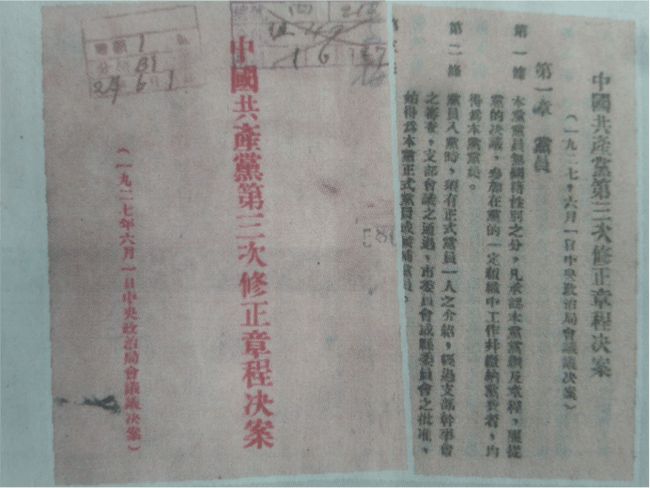 中國共產黨第三次修正章程决案
(一九二七年六月一日中央政治局會議議决案)
中國共產黨第三次修正章程决案
(一九二七,六月一日中央政治局會議議决案)
第一章 黨員
第一條 本黨黨員無國籍性別之分,凡承認本黨黨綱及章程,服從
黨的决議,參加在黨的一定組織中工作幷繳納黨費者,均
得爲本黨黨員。
第二條 黨員入黨時,須有正式黨員一人之介紹,經過支部幹事會
之審查,支部會議之通過,市委員會或縣委員會之批准,
始得爲本黨正式黨員或候補黨員。